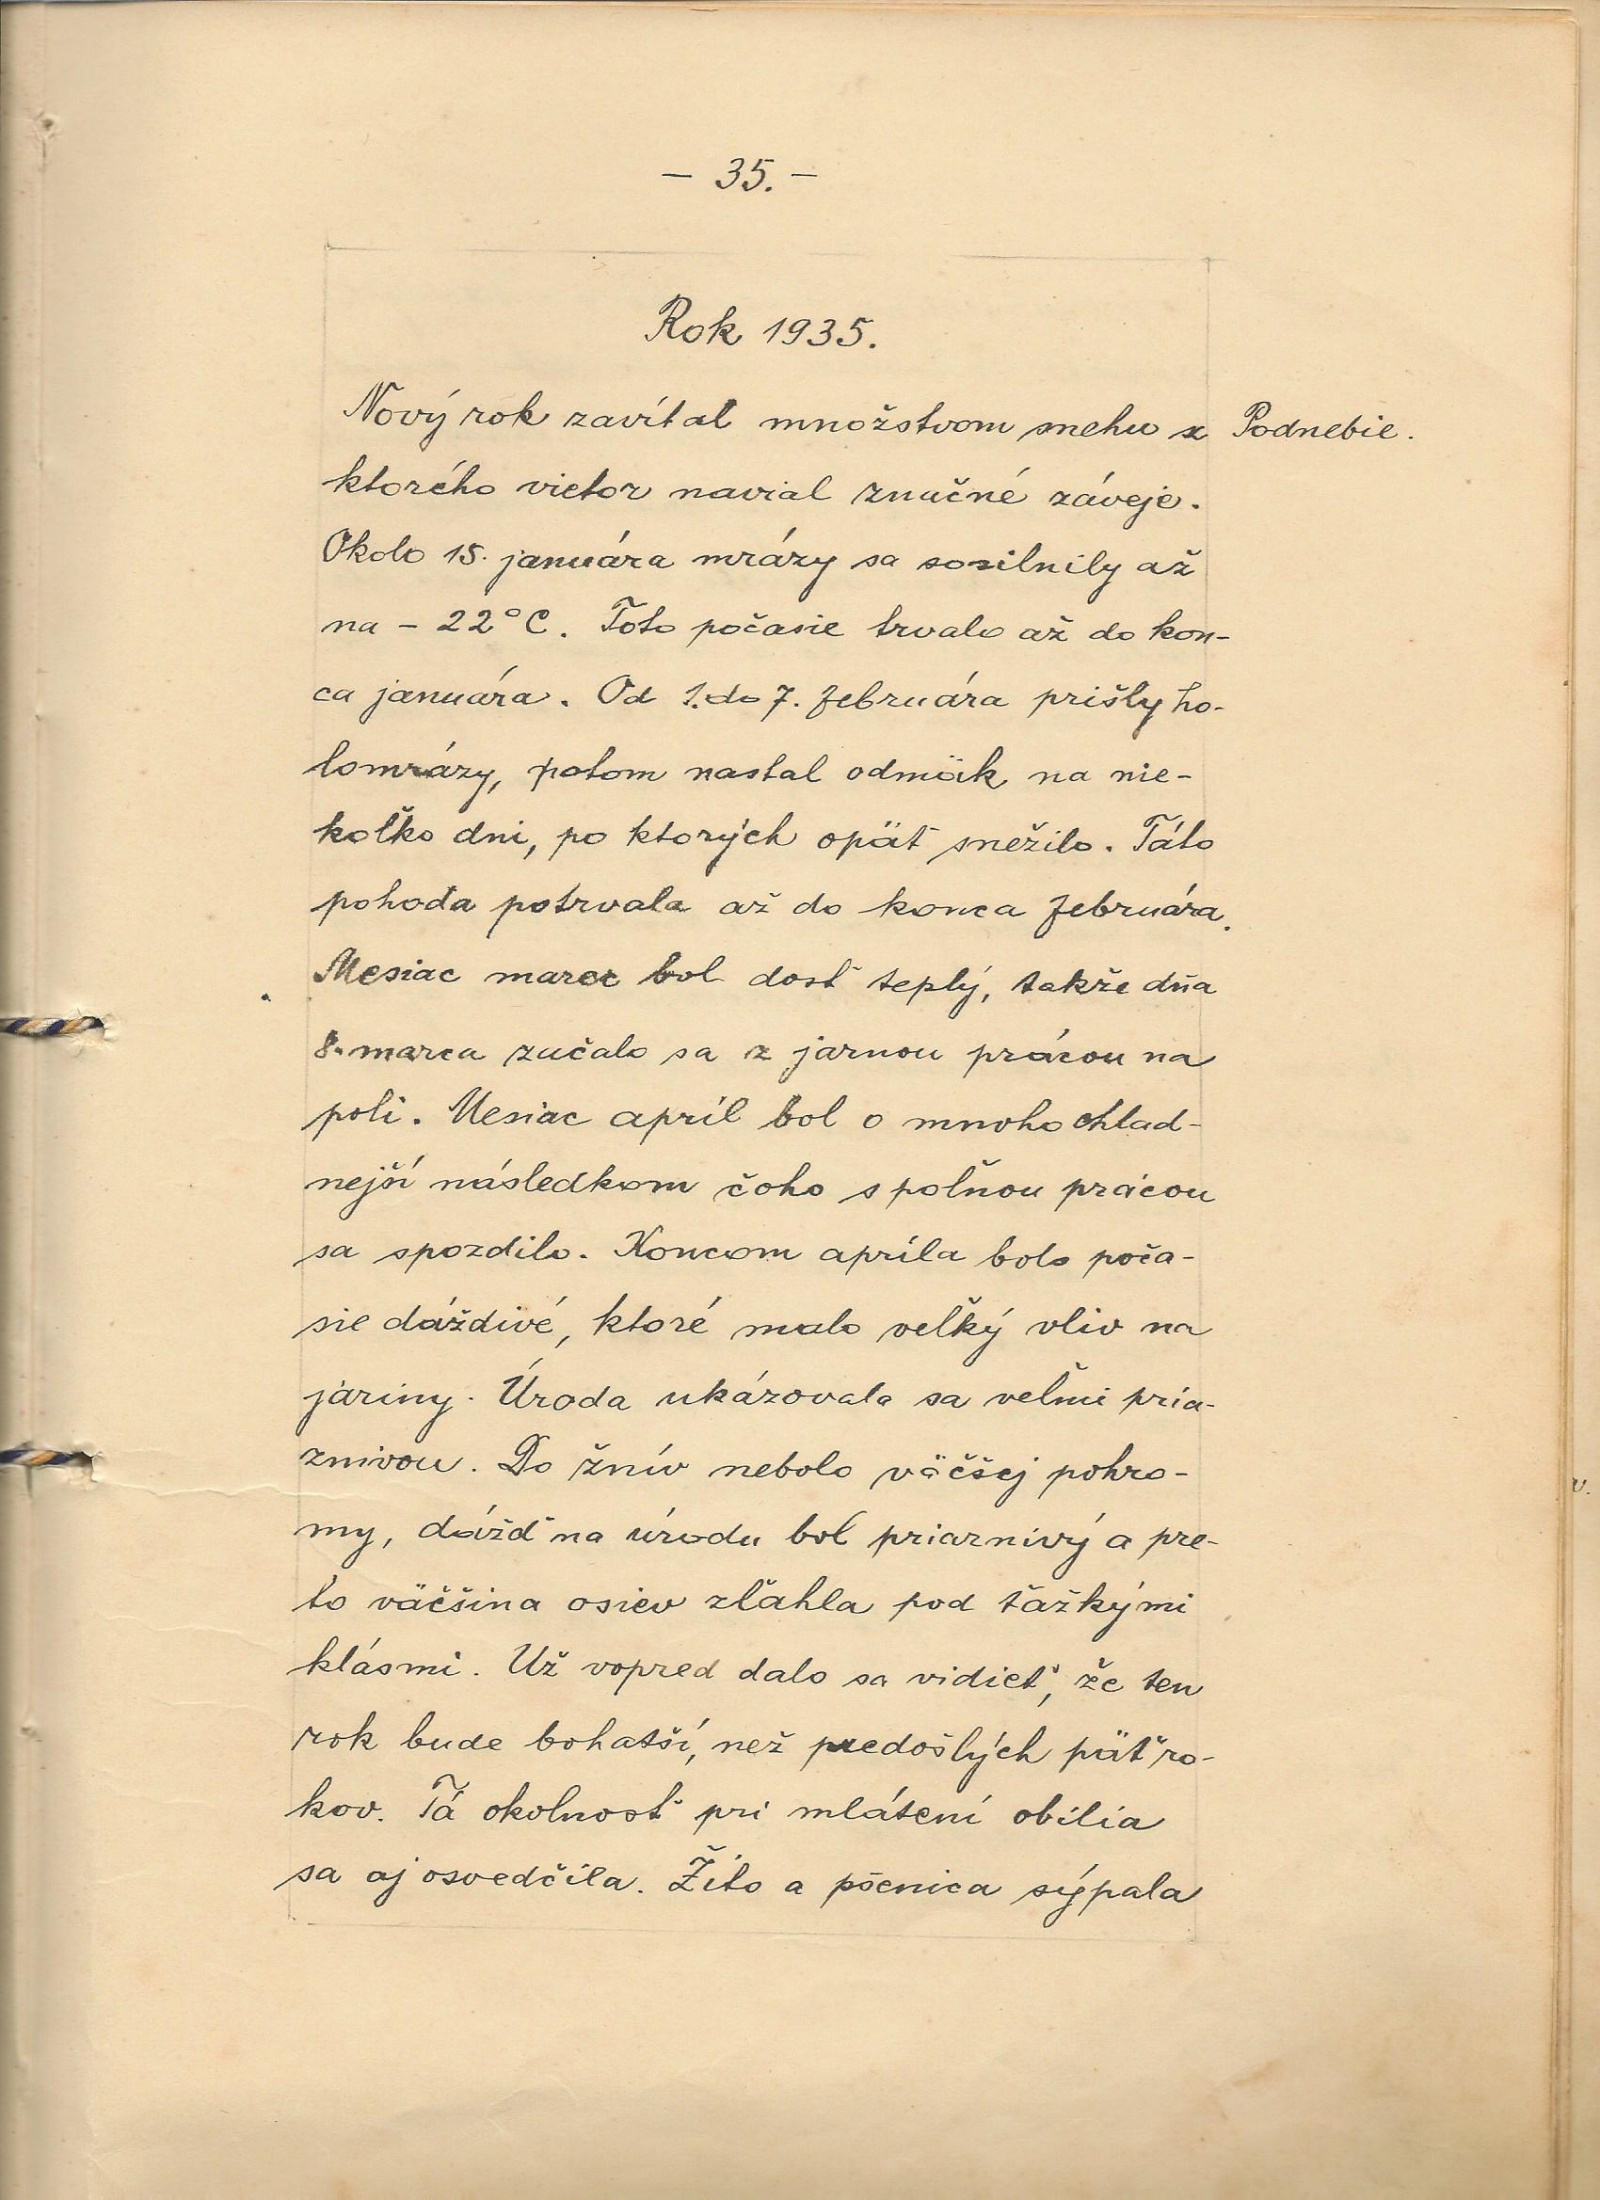 - 35. -
Rok 1935.
Nový rok zavítal množstvom snehu z Podnebie.
ktorého vietor navial značné záveje.
Okolo 15. januára mrázy sa sosilnily až
na - 22° C. Toto počasie trvalo až do kon-
ca januára. Od 1. do 7. februára prišly ho-
lomrázy, potom nastal odmäk na nie-
koľko dni, po ktorých opäť snežilo. Táto
pohoda potrvala až do konca februára.
Mesiac marec bol dosť teplý, takže dňa
8. marca začalo sa z jarnou prácou na
poli. Mesiac apríl bol o mnoho chlad-
nejší následkom čoho s poľnou prácou
sa spozdilo. Koncom apríla bolo poča-
sie dáždivé, ktoré malo veľký vliv na
jariny. Úroda ukázovala sa veľmi pria-
znivou. Do žnív nebolo väčšej pohro-
my, dážď na úrodu bol priaznivý a pre-
to väčšina osiev zľahla pod ťažkými
klásmi. Už vopred dalo sa vidieť, že ten
rok bude bohatší, než predošlých päť ro-
kov. Tá okolnosť pri mlátení obilia
sa aj osvedčila. Žito a pšenica sýpala
v.